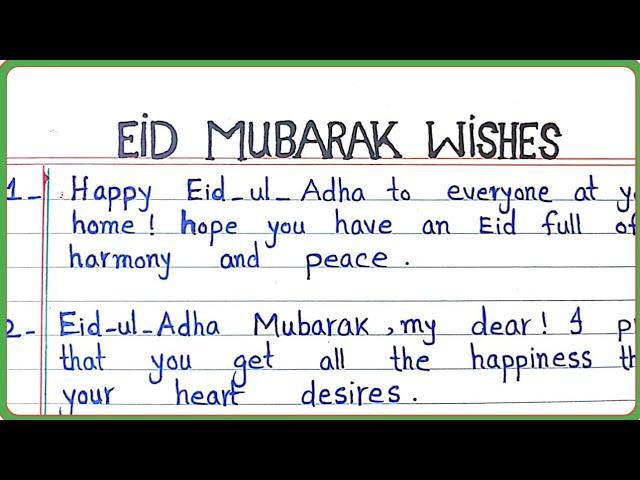 EiD MUBARAK WiSHES
1_ Happy Eid_ul_Adha to everyone at
home! hope you have an Eid full of
harmony and peace.
2- Eid_ul_Adha Mubarak, my dear! I
that you get all the happiness
your heart desires.